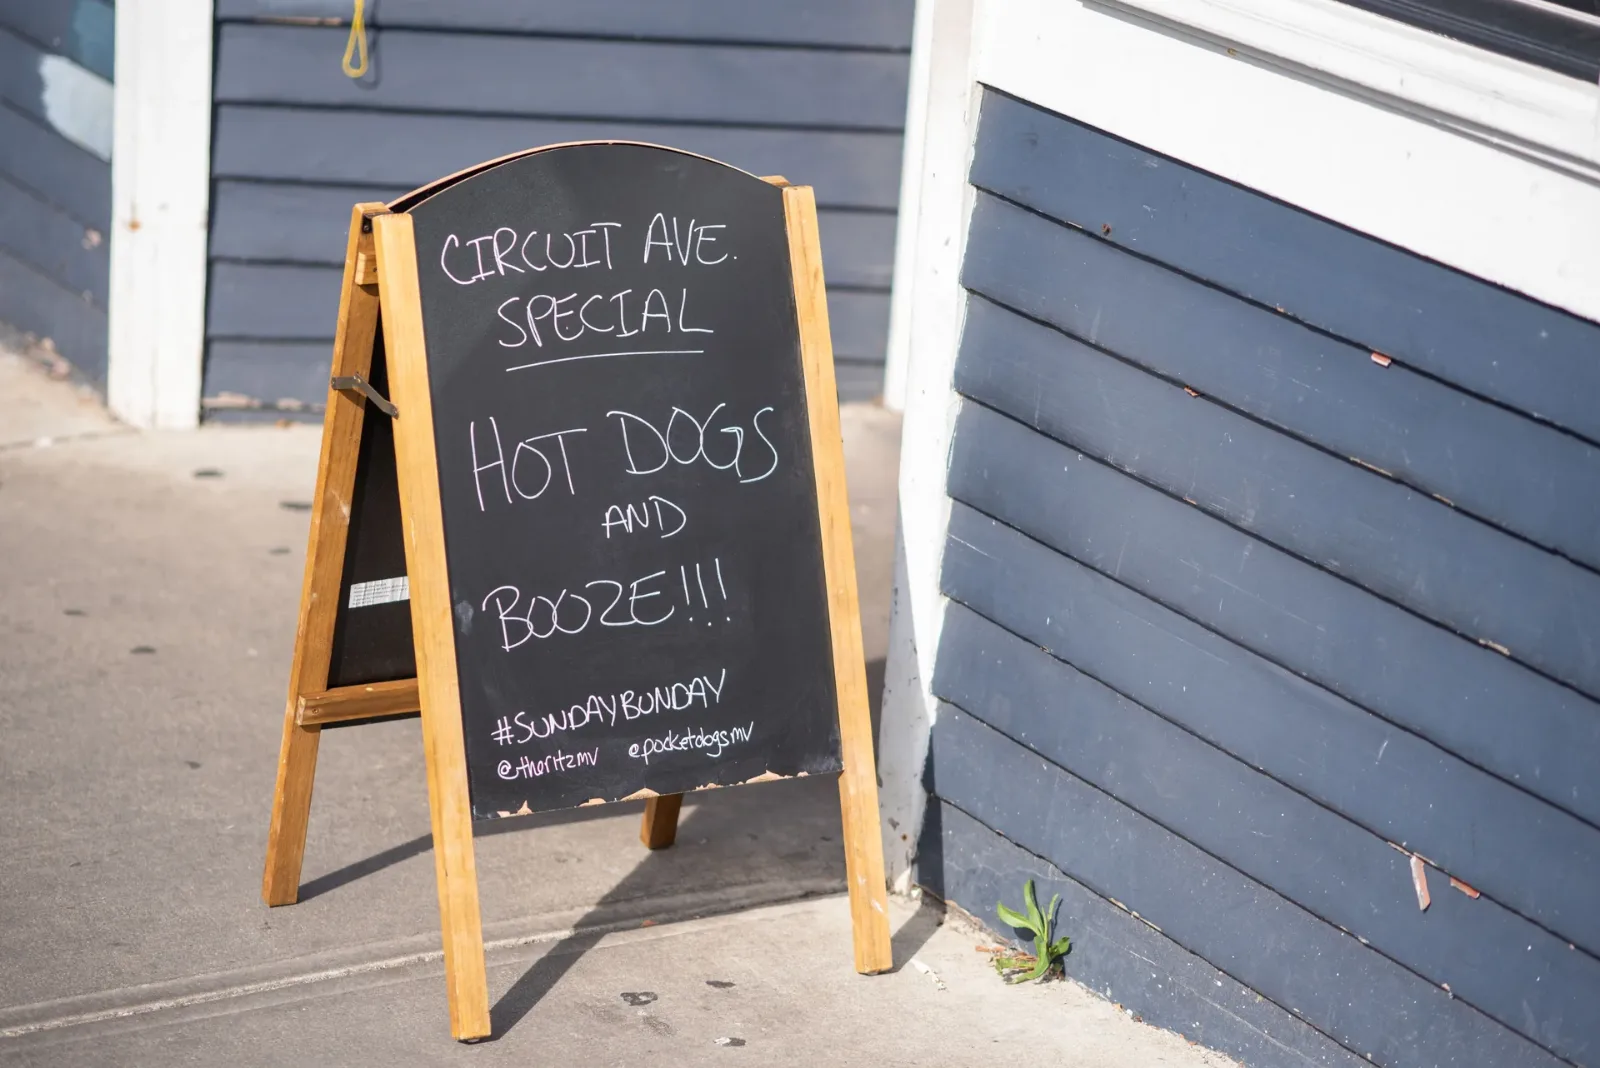 CIRCUIT AVE.
SPECIAL
HOT DOGS
AND
BOOZE!!!
#SUNDAYBUNDAY
@theritzmv @pocketdogsmv